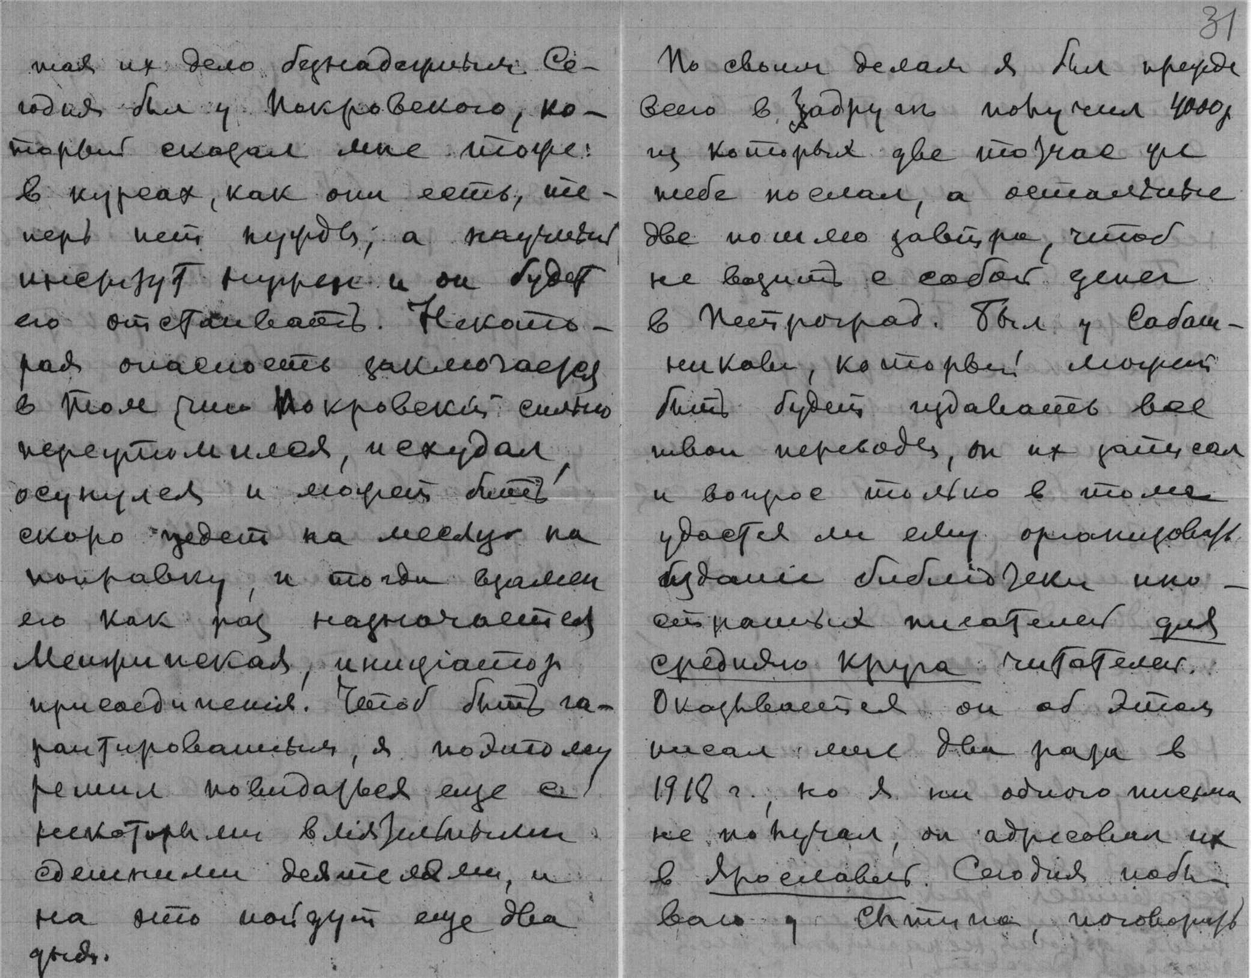 тая их дело безнадежным. Се-
годня был у Покровского, ко-
торый сказал мне тоже:
в курсах, как они есть, те-
перь нет нужды, а научный
институт нужен и он будет
его отстаивать. Некото-
рая опасность заключается
в том что Покровский сильно
переутомился, исхудал,
осунулся и может быть
скоро уедет на месяц на
поправку, и тогда взамен
его как раз назначается
Менжинская, инициатор
присоединения. Чтоб быть га-
рантированным, я поэтому
решил повидаться еще с
некоторыми влиятельными
сдешними деятелями, и
на это пойдут еще два
дня.
31
По своим делам я был прежде
всего в Задруге получил 4000р
из которых две тотчас же
тебе послал, а остальные
две пошлю завтра, чтоб
не возить с собой денег
в Петроград. Был у Сабаш-
никова, который может
быть будет издавать все
твои переводы, он их записал
и вопрос только в том
удастся ли ему организовать
издание библіотеки ино-
странных писателей для
средняго круга читателей.
Оказывается он об этом
писал мне два раза в
1918 г., но я ни одного письма
не получал, он адресовал их
в Ярославль. Сегодня побы-
ваю у Сытина, поговорить